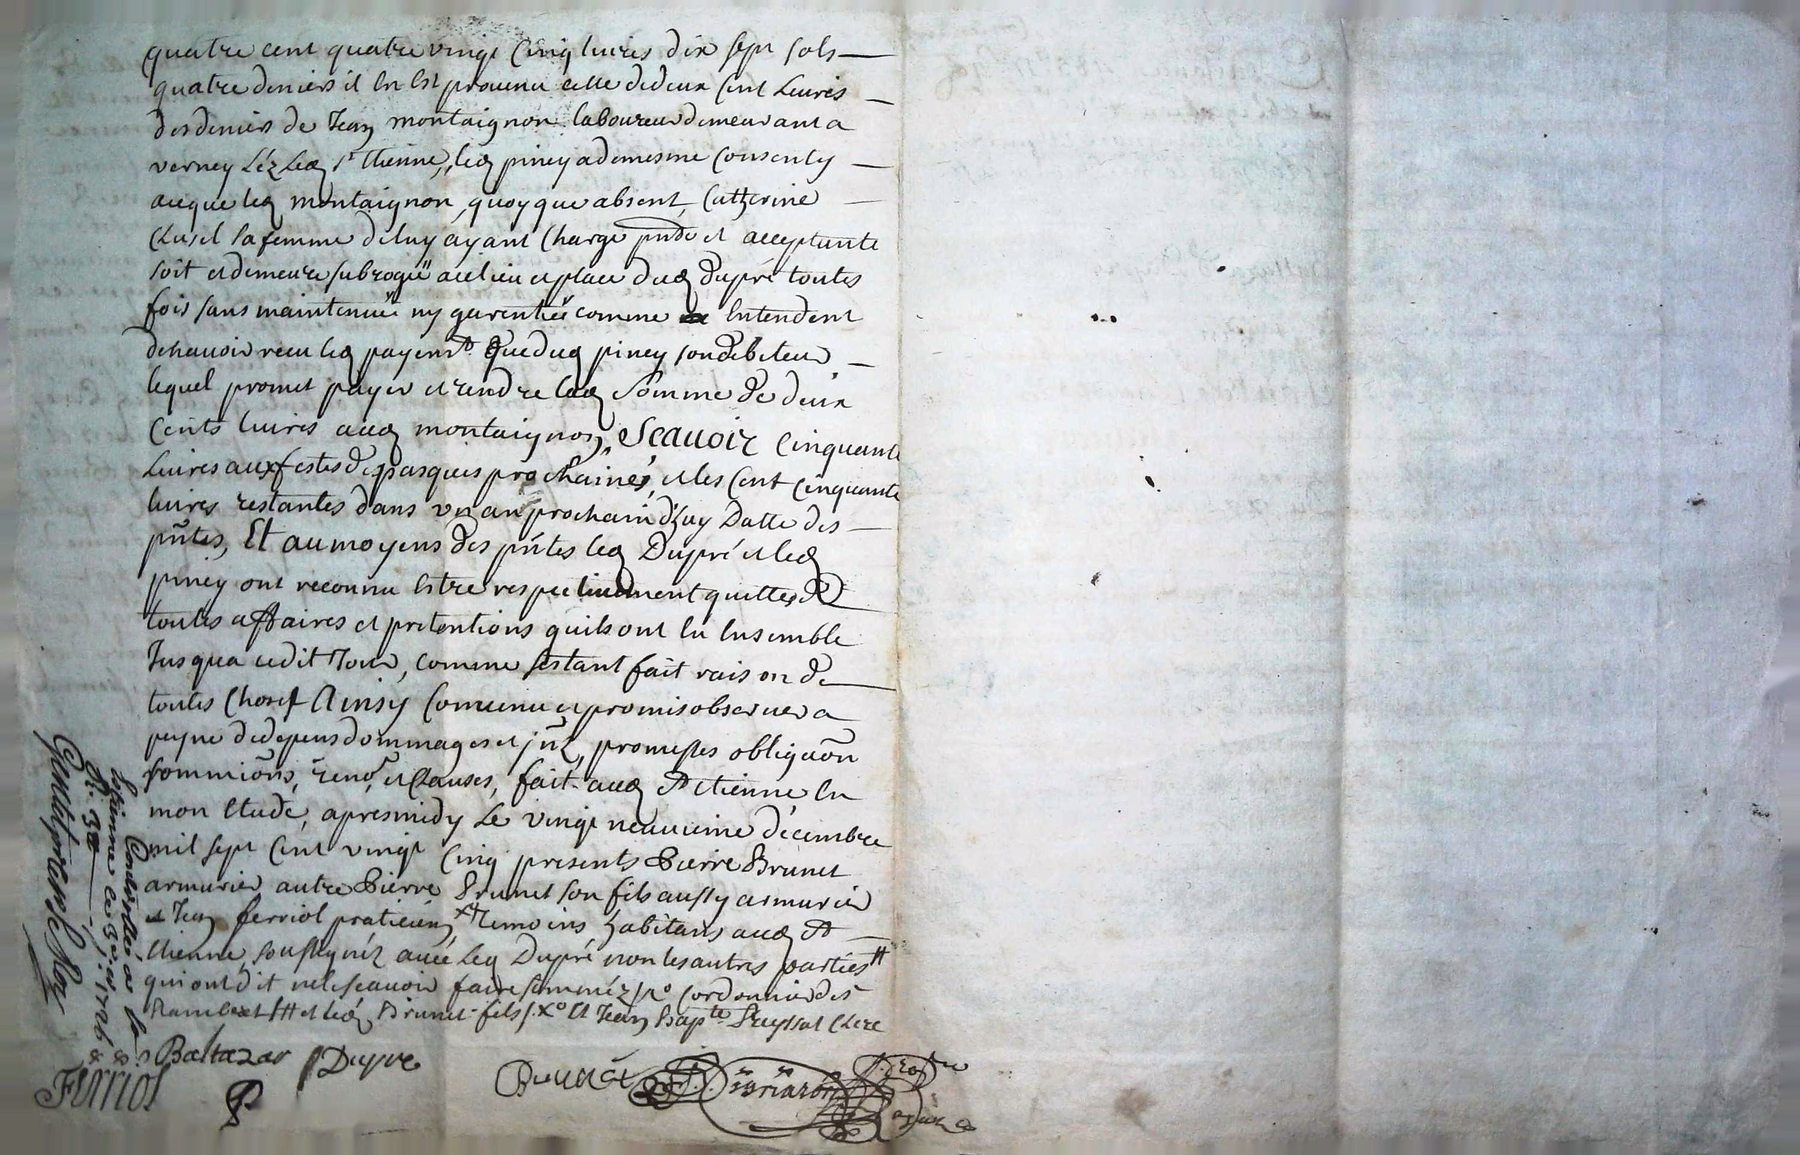 quatre cent quatre vingt Cinq livres dix sept sols
quatre deniers il en Est provenu celle de deux Cent Livres
des deniers de Jean montaignon laboureur demeurant a
verney Léz led St Etienne, led piney a de mesme Consenty
acque led montaignon, quoy que absent, Catherine
Clusel sa femme de luy ayant Charge pnte et acceptante
soit et demeure subrogée au lieu et place dud dupré toutes
fois sans maintenüe ny garentie comme Entendent
dehavoir receu led payemt que dud piney son debiteur
lequel promet payer et rendre lad Somme de deux
Cents livres aud montaignon, Scavoir Cinquante
Livres aux festes de pasques prochaines, et les Cent Cinquante
livres restantes dans un an prochain d'huy Datte des
pntes, Et au moyens des pntes led Dupré et led
piney ont reconnu Estre respectivement quittes de
toutes affaires et pretentions quils ont Eu Ensemble
Jusqua cedit Jour, comme sestant fait raison de
toutes Choses Ainsy Convenu et promis observer a
peyne de depens dommages et , promesses obligaôn
sommiôns, renôs, et Clauses, fait aud St Etienne En
mon Etude, apres midy Le vingt neuvieme décembre
mil sept Cent vingt Cinq presents Pierre Brunet
armurier autre Pierre Brunet son fils aussy armurier
et Jean ferriol praticien Temoins habitans aud St
Etienne, soussignéz avec Led Dupré non les autres parties
qui ont dit ne le scavoir faire Cordonnier de St
Rambert et led Brunet fils Et Jean Bapte Peyssat Clerc
Baltazar Dupre
Brunet
Ferriol
Controllé a St
Etienne le
1726